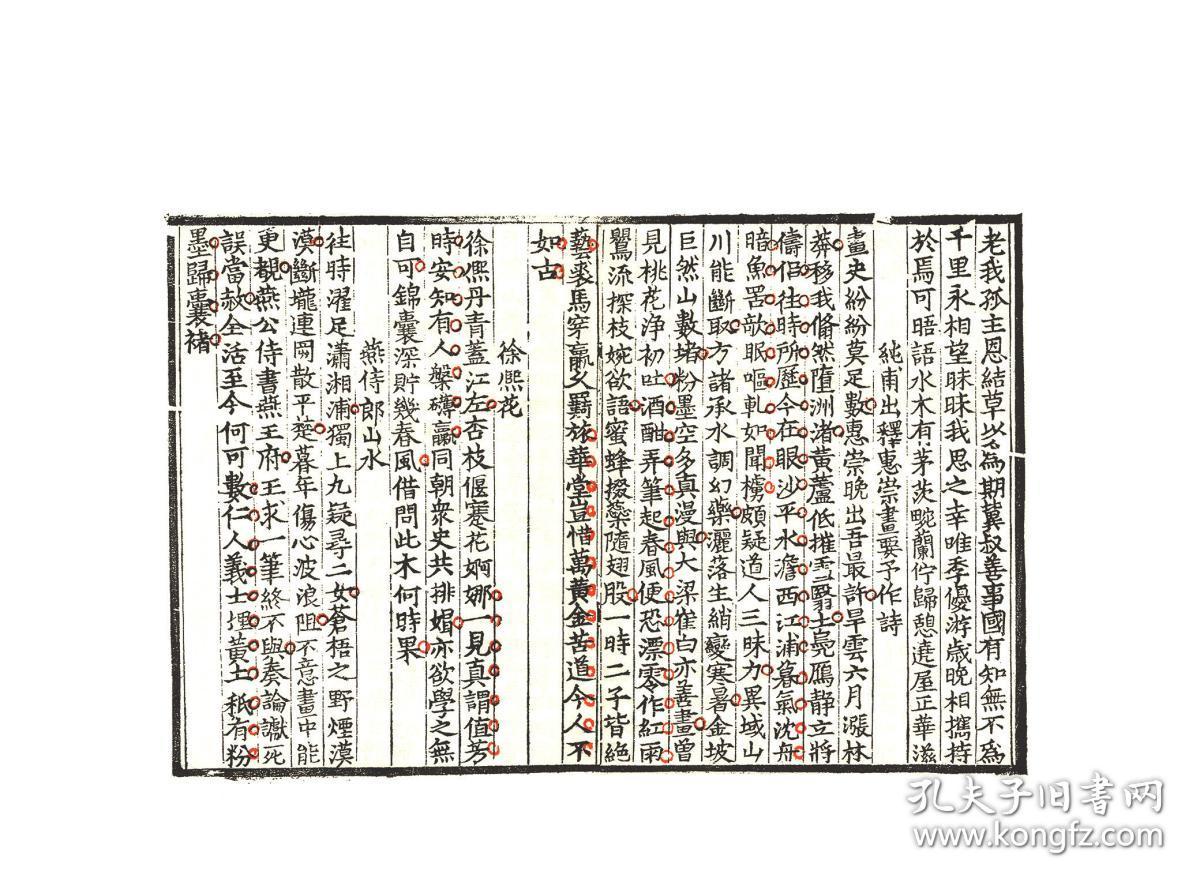 老我孤主恩結草以爲期冀叔善事國有知無不爲
千里永相望昧昧我思之幸唯季優游歲晚相攜持
於焉可晤語水木有茅茨畹蘭佇歸憩遶屋正華滋
純甫出釋惠崇畫要予作詩
畫史紛紛莫足數惠崇晚出吾最許旱雲六月漲林
莽移我翛然墮洲渚黃蘆低摧雪翳土鳧鴈静立將
儔侣往時所歷今在眼沙平水澹西江浦暮氣沈舟
暗魚罟欹眠嘔軋如聞櫓頗疑道人三昧力異域山
川能斷取方諸承水調幻藥灑落生綃變寒暑金坡
巨然山數堵粉墨空多真漫與大梁崔白亦善畫曾
見桃花浄初吐酒酣弄筆起春風便恐漂零作紅雨
鸎流探枝婉欲語蜜蜂掇蘂隨翅股一時二子皆絶
藝裘馬穿羸久羇旅華堂豈惜萬黃金苦道今人不
如古
徐熙花
徐熙丹青蓋江左杏枝偃蹇花婀娜一見真謂值芳
時安知有人槃礴羸同朝衆史共排媢亦欲學之無
自可錦囊深貯幾春風借問此木何時果
燕侍郎山水
往時濯足瀟湘浦獨上九疑尋二女蒼梧之野煙漠
漠斷壠連岡散平楚暮年傷心波浪阻不意畫中能
更覩燕公侍書燕王府王求一筆終不與奏論讞死
誤當赦全活至今何可數仁人義士埋黃土秖有粉
墨歸囊褚
孔夫子旧書网
www.kongfz.com